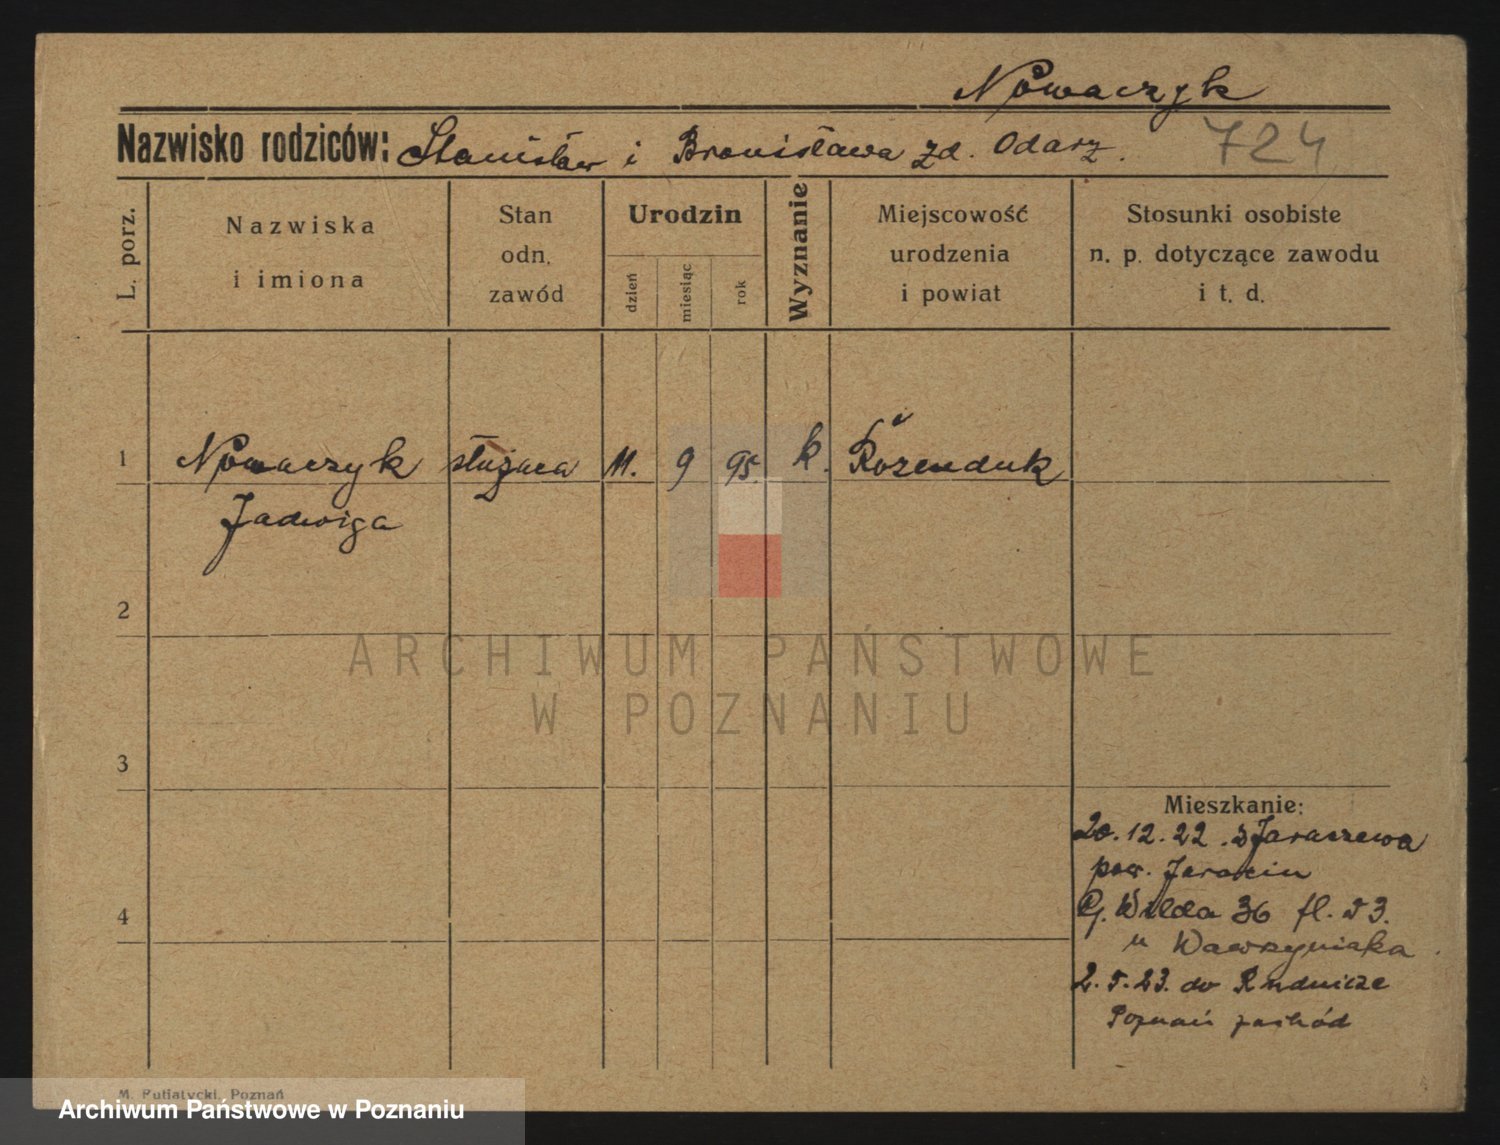 Nowaczyk
Nazwisko rodziców: Stanisław i Bronisława zd. Odarz. 724
L. porz.
Nazwiska
i imiona
Stan
odn.
zawód
Urodzin
dzień
miesiąc
rok
Wyznanie
Miejscowość
urodzenia
i powiat
Stosunki osobiste
n. p. dotyczące zawodu
i t. d.
1 Nowaczyk służąca 11. 9 95. k.
Jadwiga
2
ARCHIWUM PAŃSTWOWE
W POZNANIU
3
Mieszkanie:
20.12.22. z Jaraczewa
pow. Jarocin
G. Wilda 36
4
u Wawrzyniaka
2.5.23. do Rudnicze
Poznań zachód
M. Putiatycki, Poznań
Archiwum Państwowe w Poznaniu